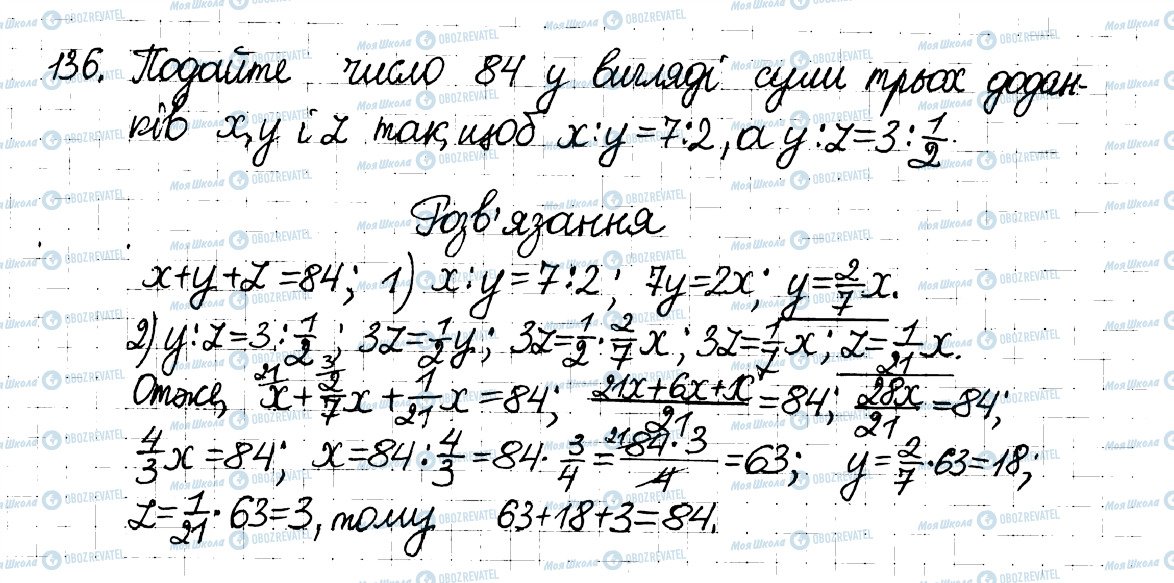 136. Подайте число 84 у вигляді суми трьох додан-
ків x, y і z так, щоб x:y=7:2, а y:z=3:1/2.
Розв'язання
x+y+z=84; 1) x:y=7:2; 7y=2x; y=2/7x.
2) y:z=3:1/2; 3z=1/2y; 3z=1/2·2/7x; 3z=1/7x; z=1/21x.
Отже, x+2/7x+1/21x=84; (21x+6x+1x)/21=84; 28x/21=84;
4/3x=84; x=84:4/3=84·3/4=(84·3)/4=63; y=2/7·63=18;
z=1/21·63=3, тому 63+18+3=84.